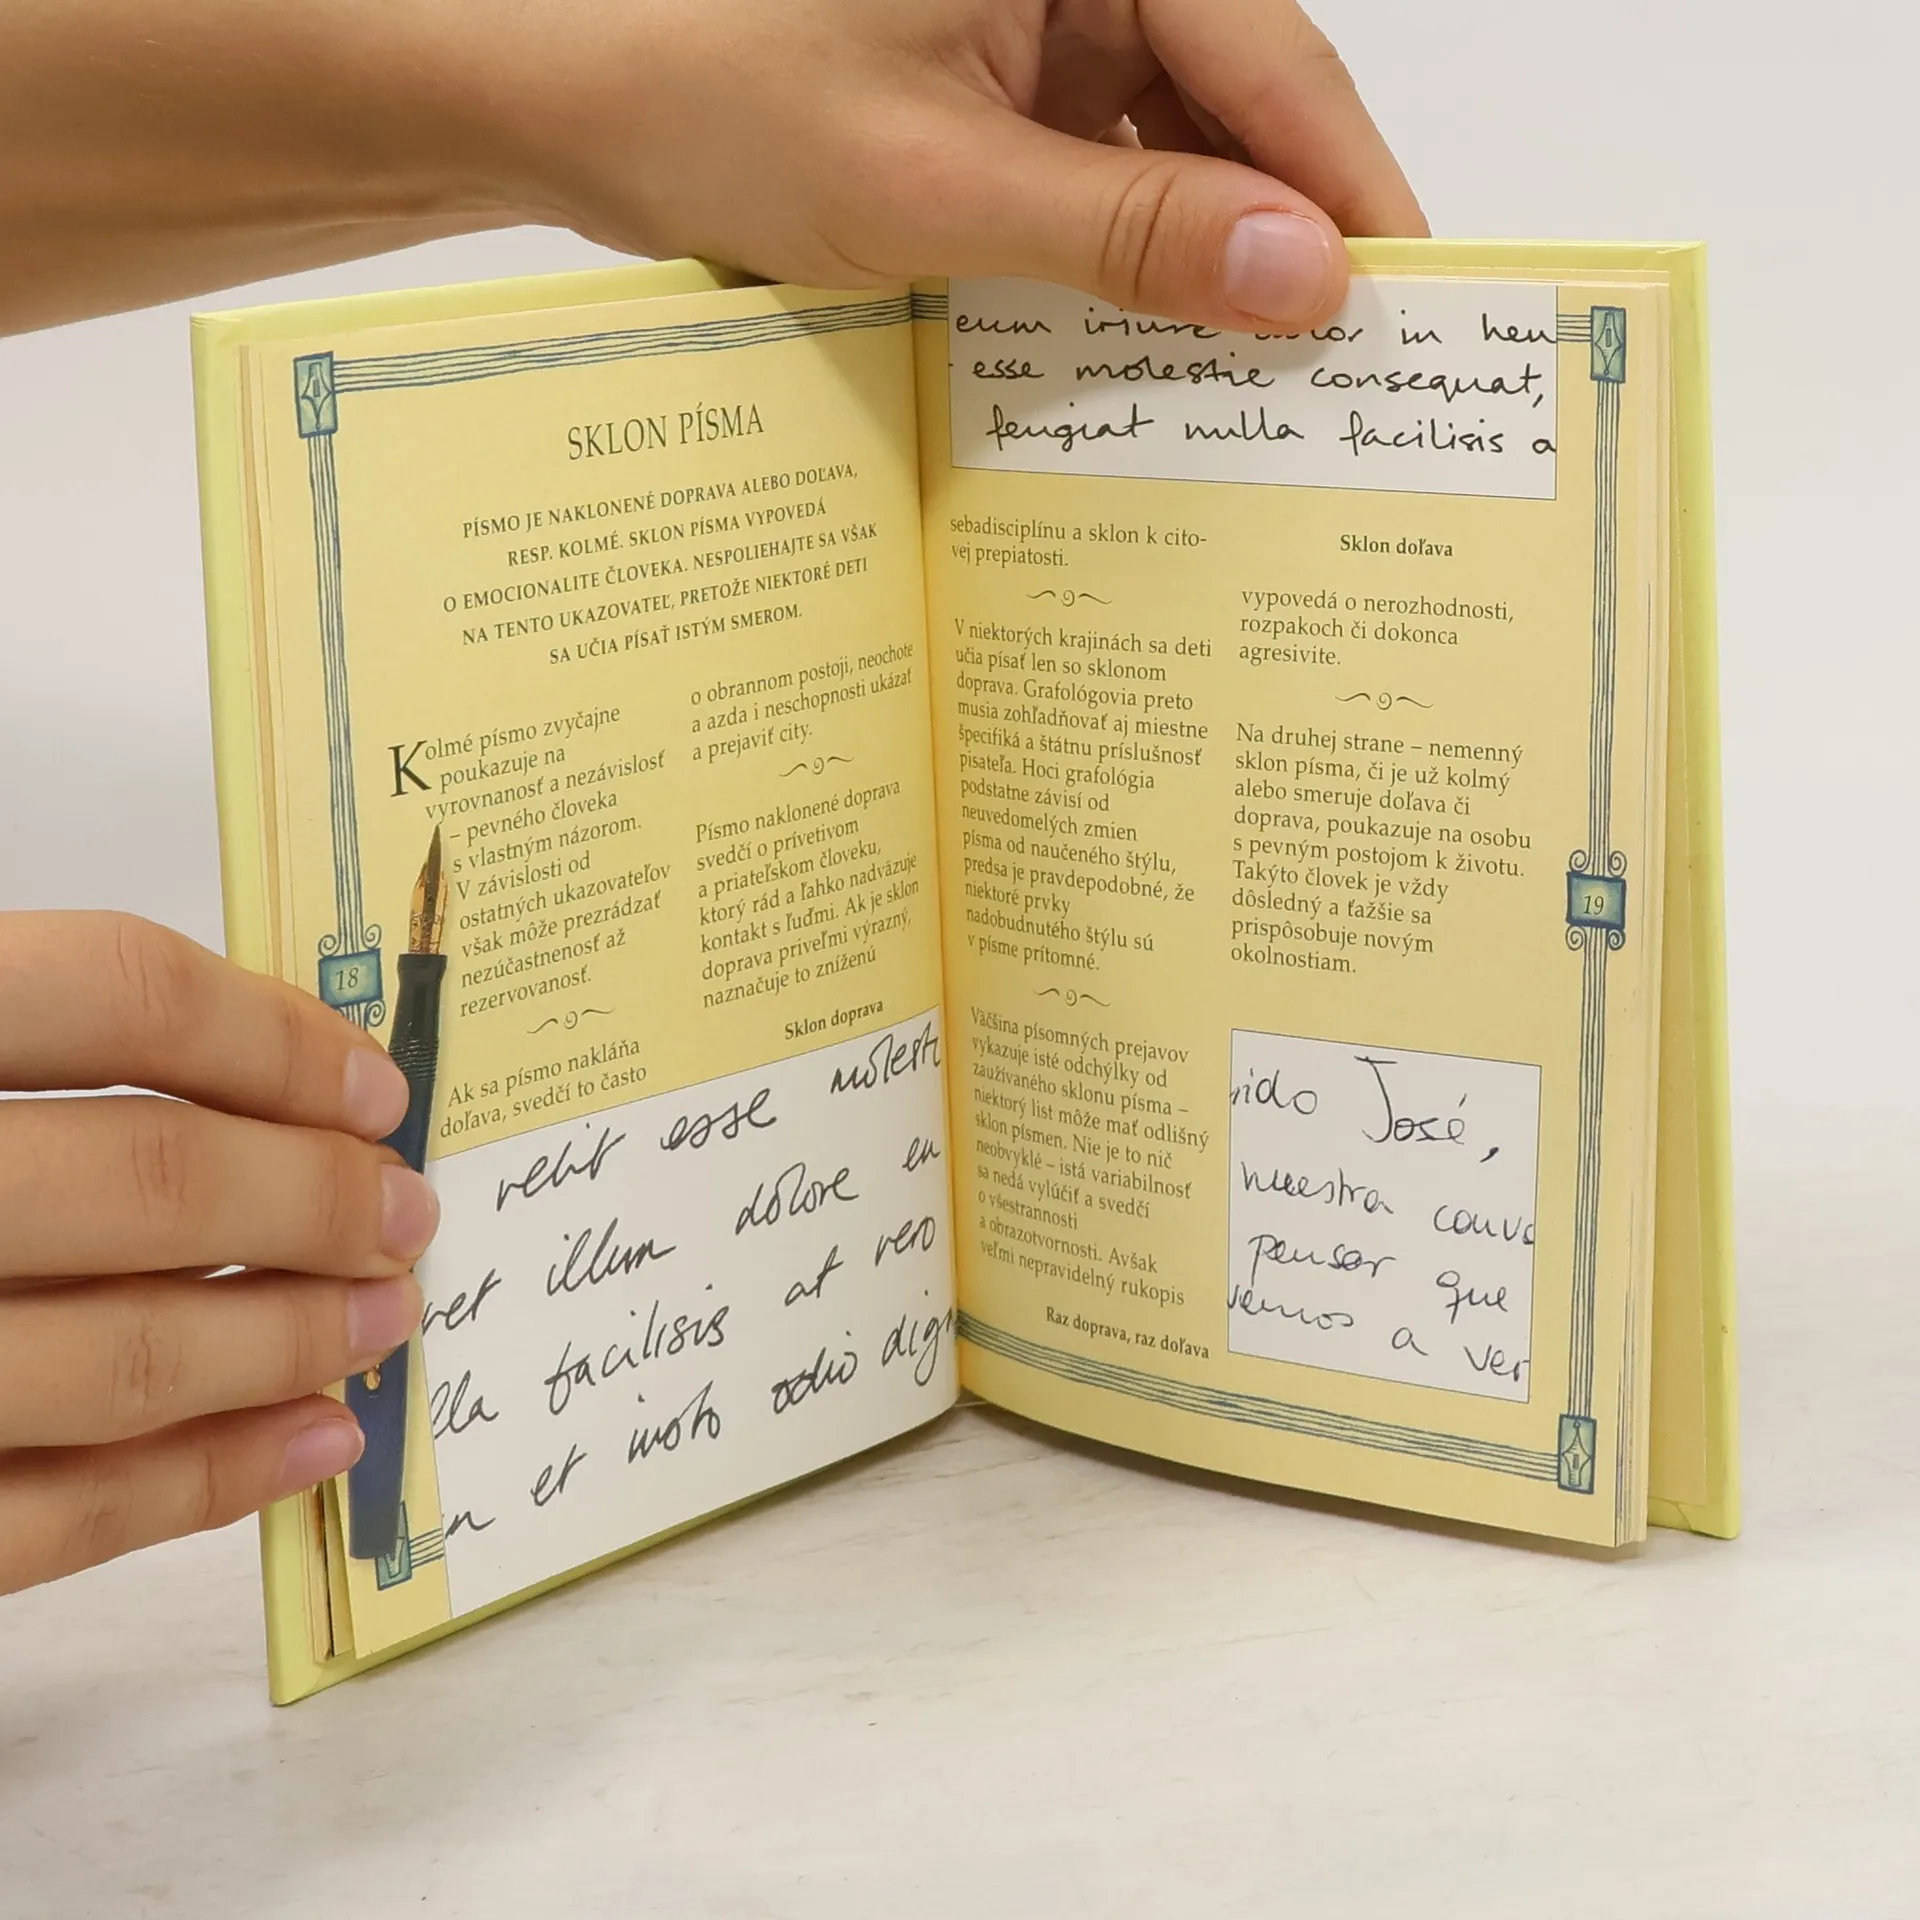 SKLON PÍSMA
PÍSMO JE NAKLONENÉ DOPRAVA ALEBO DOĽAVA,
RESP. KOLMÉ. SKLON PÍSMA VYPOVEDÁ
O EMOCIONALITE ČLOVEKA. NESPOLIEHAJTE SA VŠAK
NA TENTO UKAZOVATEĽ, PRETOŽE NIEKTORÉ DETI
SA UČIA PÍSAŤ ISTÝM SMEROM.
Kolmé písmo zvyčajne
poukazuje na
vyrovnanosť a nezávislosť
– pevného človeka
s vlastným názorom.
V závislosti od
ostatných ukazovateľov
však môže prezrádzať
nezúčastnenosť až
rezervovanosť.
Ak sa písmo nakláňa
doľava, svedčí to často
o obrannom postoji, neochote
a azda i neschopnosti ukázať
a prejaviť city.
Písmo naklonené doprava
svedčí o prívetivom
a priateľskom človeku,
ktorý rád a ľahko nadväzuje
kontakt s ľuďmi. Ak je sklon
doprava priveľmi výrazný,
naznačuje to zníženú
Sklon doprava
velit esse molesti
vet illum dolore eu
lla facilisis at vero
et iusto odio dign
18
eum iriure dolor in hen
esse molestie consequat,
feugiat nulla facilisis a
sebadisciplínu a sklon k cito-
vej prepiatosti.
V niektorých krajinách sa deti
učia písať len so sklonom
doprava. Grafológovia preto
musia zohľadňovať aj miestne
špecifiká a štátnu príslušnosť
pisateľa. Hoci grafológia
podstatne závisí od
neuvedomelých zmien
písma od naučeného štýlu,
predsa je pravdepodobné, že
niektoré prvky
nadobudnutého štýlu sú
v písme prítomné.
Väčšina písomných prejavov
vykazuje isté odchýlky od
zaužívaného sklonu písma –
niektorý list môže mať odlišný
sklon písmen. Nie je to nič
neobvyklé – istá variabilnosť
sa nedá vylúčiť a svedčí
o všestrannosti
a obrazotvornosti. Avšak
veľmi nepravidelný rukopis
Raz doprava, raz doľava
Sklon doľava
vypovedá o nerozhodnosti,
rozpakoch či dokonca
agresivite.
Na druhej strane – nemenný
sklon písma, či je už kolmý
alebo smeruje doľava či
doprava, poukazuje na osobu
s pevným postojom k životu.
Takýto človek je vždy
dôsledný a ťažšie sa
prispôsobuje novým
okolnostiam.
rido José,
nuestra conve
pensar que
vemos a ver
19